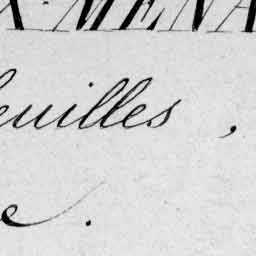 X-MENA
euilles,
e.